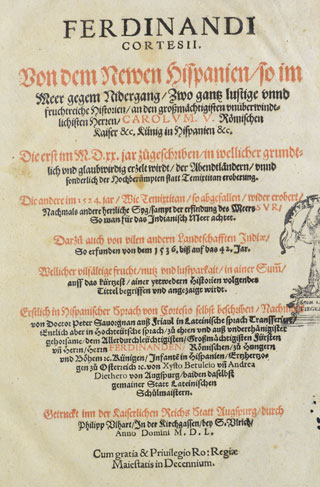 FERDINANDI
CORTESII.
Von dem Newen Hispanien / so im
Meer gegem Nidergang / Zwo gantz lustige vnnd
fruchtreiche Historien / an den großmächtigisten vnüberwindt-
lichisten Herren / CAROLVM. V. Römischen
Kaiser &c. Künig in Hispanien &c.
Die erst im M.D.xx. jar zůgeschriben / in wellicher grundt-
lich vnd glaubwirdig erzelt wirdt / der Abendtländern / vnnd
sonderlich der Hochberůmpten statt Temixtitan eroberung.
Die andere im 1524. jar / Wie Temixtitan / so abgefallen / wider erobert /
Nachmals andere herrliche Syg / sampt der erfindung des Meers SVR /
So man für das Indianisch Meer achtet.
Darzů auch von vilen andern Landtschafften Indiæ /
So erfunden von dem 1536. biß auf das 42. Jar.
Wellicher vilfältige frucht / nutz vnd lustparkait / in ainer Sum̄ /
auff das kürtzest / ainer yetwedern Historien volgendes
Tittel begriffen vnd angezaigt wirdt.
Erstlich in Hispanischer Sprach von Cortesio selbs beschriben / Nachmals
von Doctor Peter Sauorgnan auß Friaul in Lateinische sprach Transferiert /
Entlich aber in Hochteütsche sprach / zů ehren vnd auß vnderthänigister
gehorsame / dem Allerdurchleüchtigisten / Großmächtigisten Fürsten
vn̄ Herrn / Herrn FERDINANDEN Römischen / zů Hungern
vnd Böhem &c. Künigen / Infante in Hispanien / Ertzhertzo-
gen zů Osterreich &c. von Xysto Betuleio vn̄ Andrea
Diethero von Augspurg / baiden daselbst
gemainer Statt Lateinischen
Schůlmaistern.
Getruckt inn der Kaiserlichen Reichs Statt Augspurg / durch
Philipp Vlhart / In der Kirchgassen / bey S. Vlrich /
Anno Domini M. D. L.
Cum gratia & Priuilegio Ro: Regiæ
Maiestatis in Decennium.